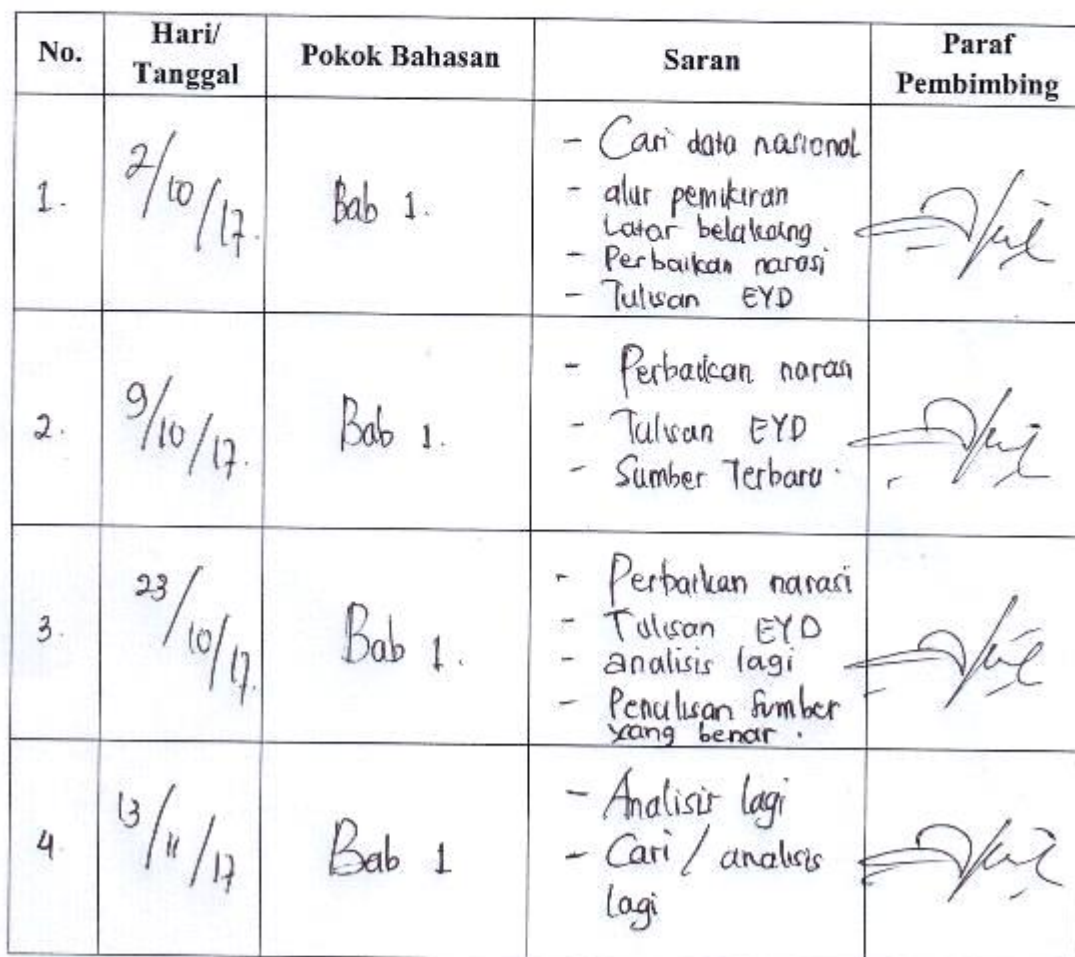 No. Hari/ Tanggal Pokok Bahasan Saran Paraf Pembimbing
1. 2/10/17. Bab 1. - Cari data nasional
- alur pemikiran
Latar belakang
- Perbaikan narasi
- Tulisan EYD
2. 9/10/17. Bab 1. - Perbaikan narasi
- Tulisan EYD
- Sumber Terbaru.
3. 23/10/17. Bab 1. - Perbaikan narasi
- Tulisan EYD
- analisis lagi
- Penulisan Sumber
yang benar.
4. 13/11/17 Bab 1 - Analisis lagi
- Cari / analisis
lagi